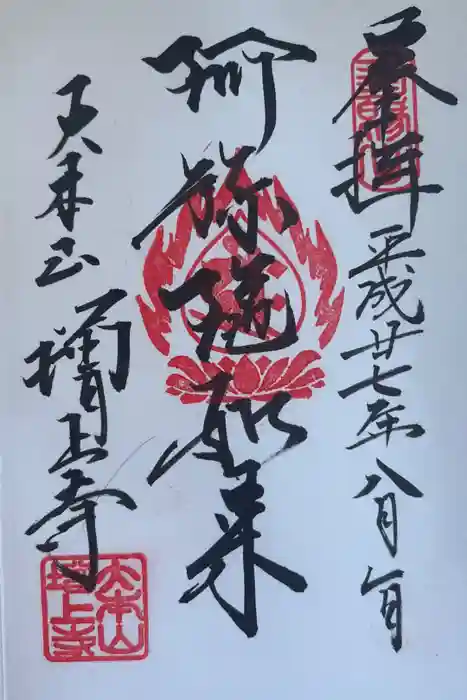 奉拝
平成廿七年八月一日
阿弥陀如来
大本山
増上寺
大本山
増上寺